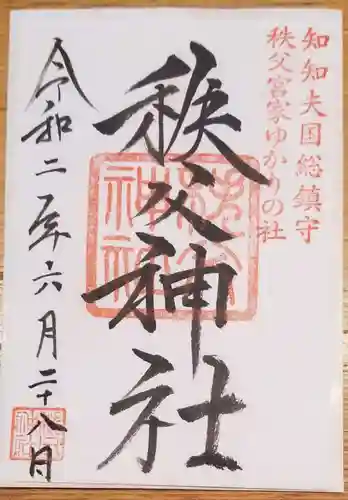 知知夫国総鎮守
秩父宮家ゆかりの社
秩父神社
令和二年六月二十八日